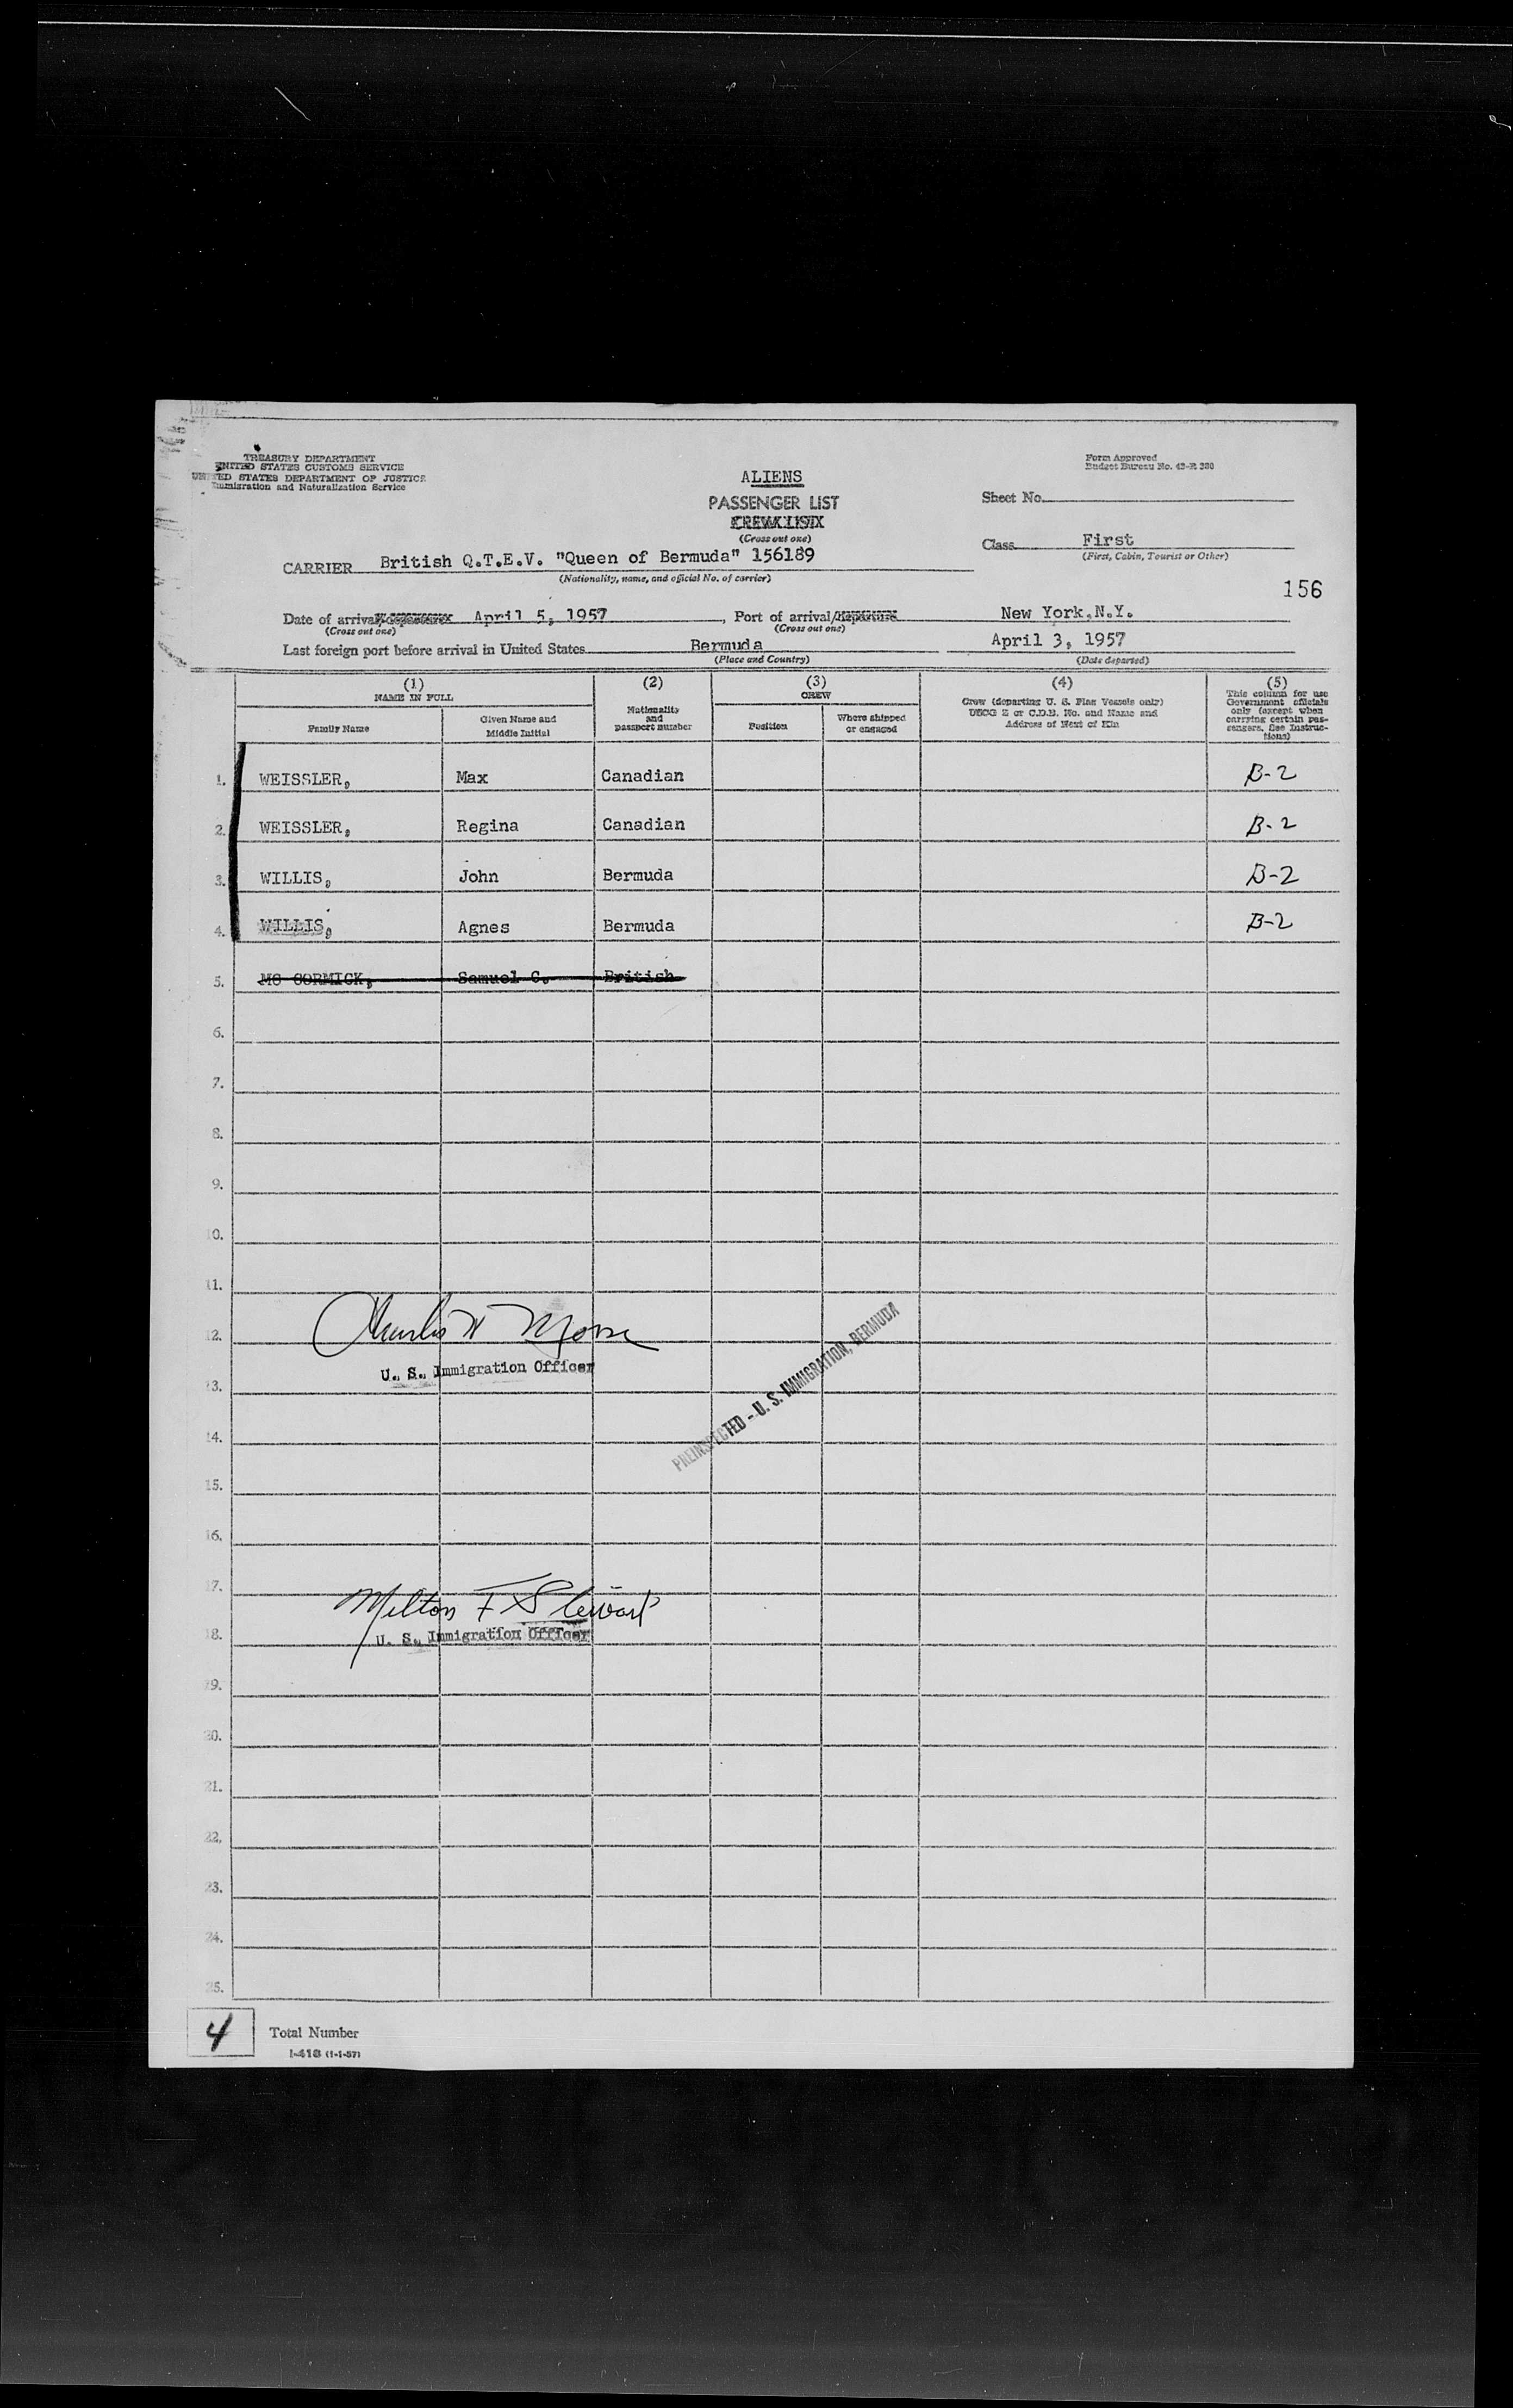 TREASURY DEPARTMENT
UNITED STATES CUSTOMS SERVICE
UNITED STATES DEPARTMENT OF JUSTICE
Immigration and Naturalization Service
Form Approved
Budget Bureau No. 43-R 380
ALIENS
PASSENGER LIST
CREW LIST
(Cross out one)
Sheet No.
Class First
(First, Cabin, Tourist or Other)
CARRIER British Q.T.E.V. "Queen of Bermuda" 156189
(Nationality, name, and official No. of carrier)
156
Date of arrival/departure April 5, 1957, Port of arrival/departure New York, N.Y.
(Cross out one) (Cross out one)
Last foreign port before arrival in United States Bermuda April 3, 1957
(Place and Country) (Date departed)
(1) (2) (3) (4) (5)
NAME IN FULL
Family Name
Given Name and
Middle Initial
Nationality
and
passport number
CREW
Position
Where shipped
or engaged
Crew (departing U. S. Flag Vessels only)
USCG Z or C.D.B. No. and Name and
Address of Next of Kin
This column for use
Government officials
only (except when
carrying certain pas-
sengers. See Instruc-
tions)
1. WEISSLER, Max Canadian B-2
2. WEISSLER, Regina Canadian B-2
3. WILLIS, John Bermuda B-2
4. WILLIS, Agnes Bermuda B-2
5. MC CORMICK, Samuel C. British
6.
7.
8.
9.
10.
11.
12. Charles W Morse
U. S. Immigration Officer
13.
PREINSPECTED - U. S. IMMIGRATION, BERMUDA
14.
15.
16.
17.
Milton F Stewart
18. U. S. Immigration Officer
19.
20.
21.
22.
23.
24.
25.
4 Total Number
I-418 (1-1-57)